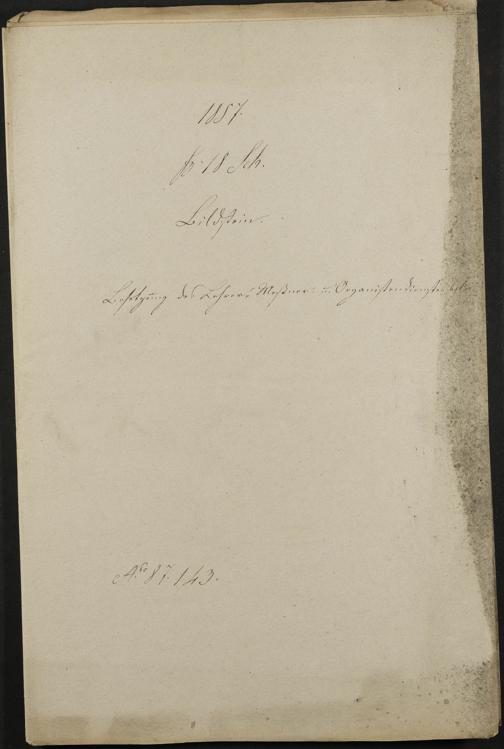 1857.
18 Sch.
Bildstein.
Besetzung des Lehrer- Meßner- u. Organistendienstes
No 87. 143.